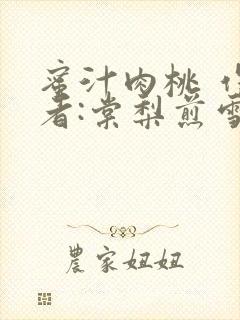 蜜汁肉桃 作
者:棠梨煎雪
農家妞妞